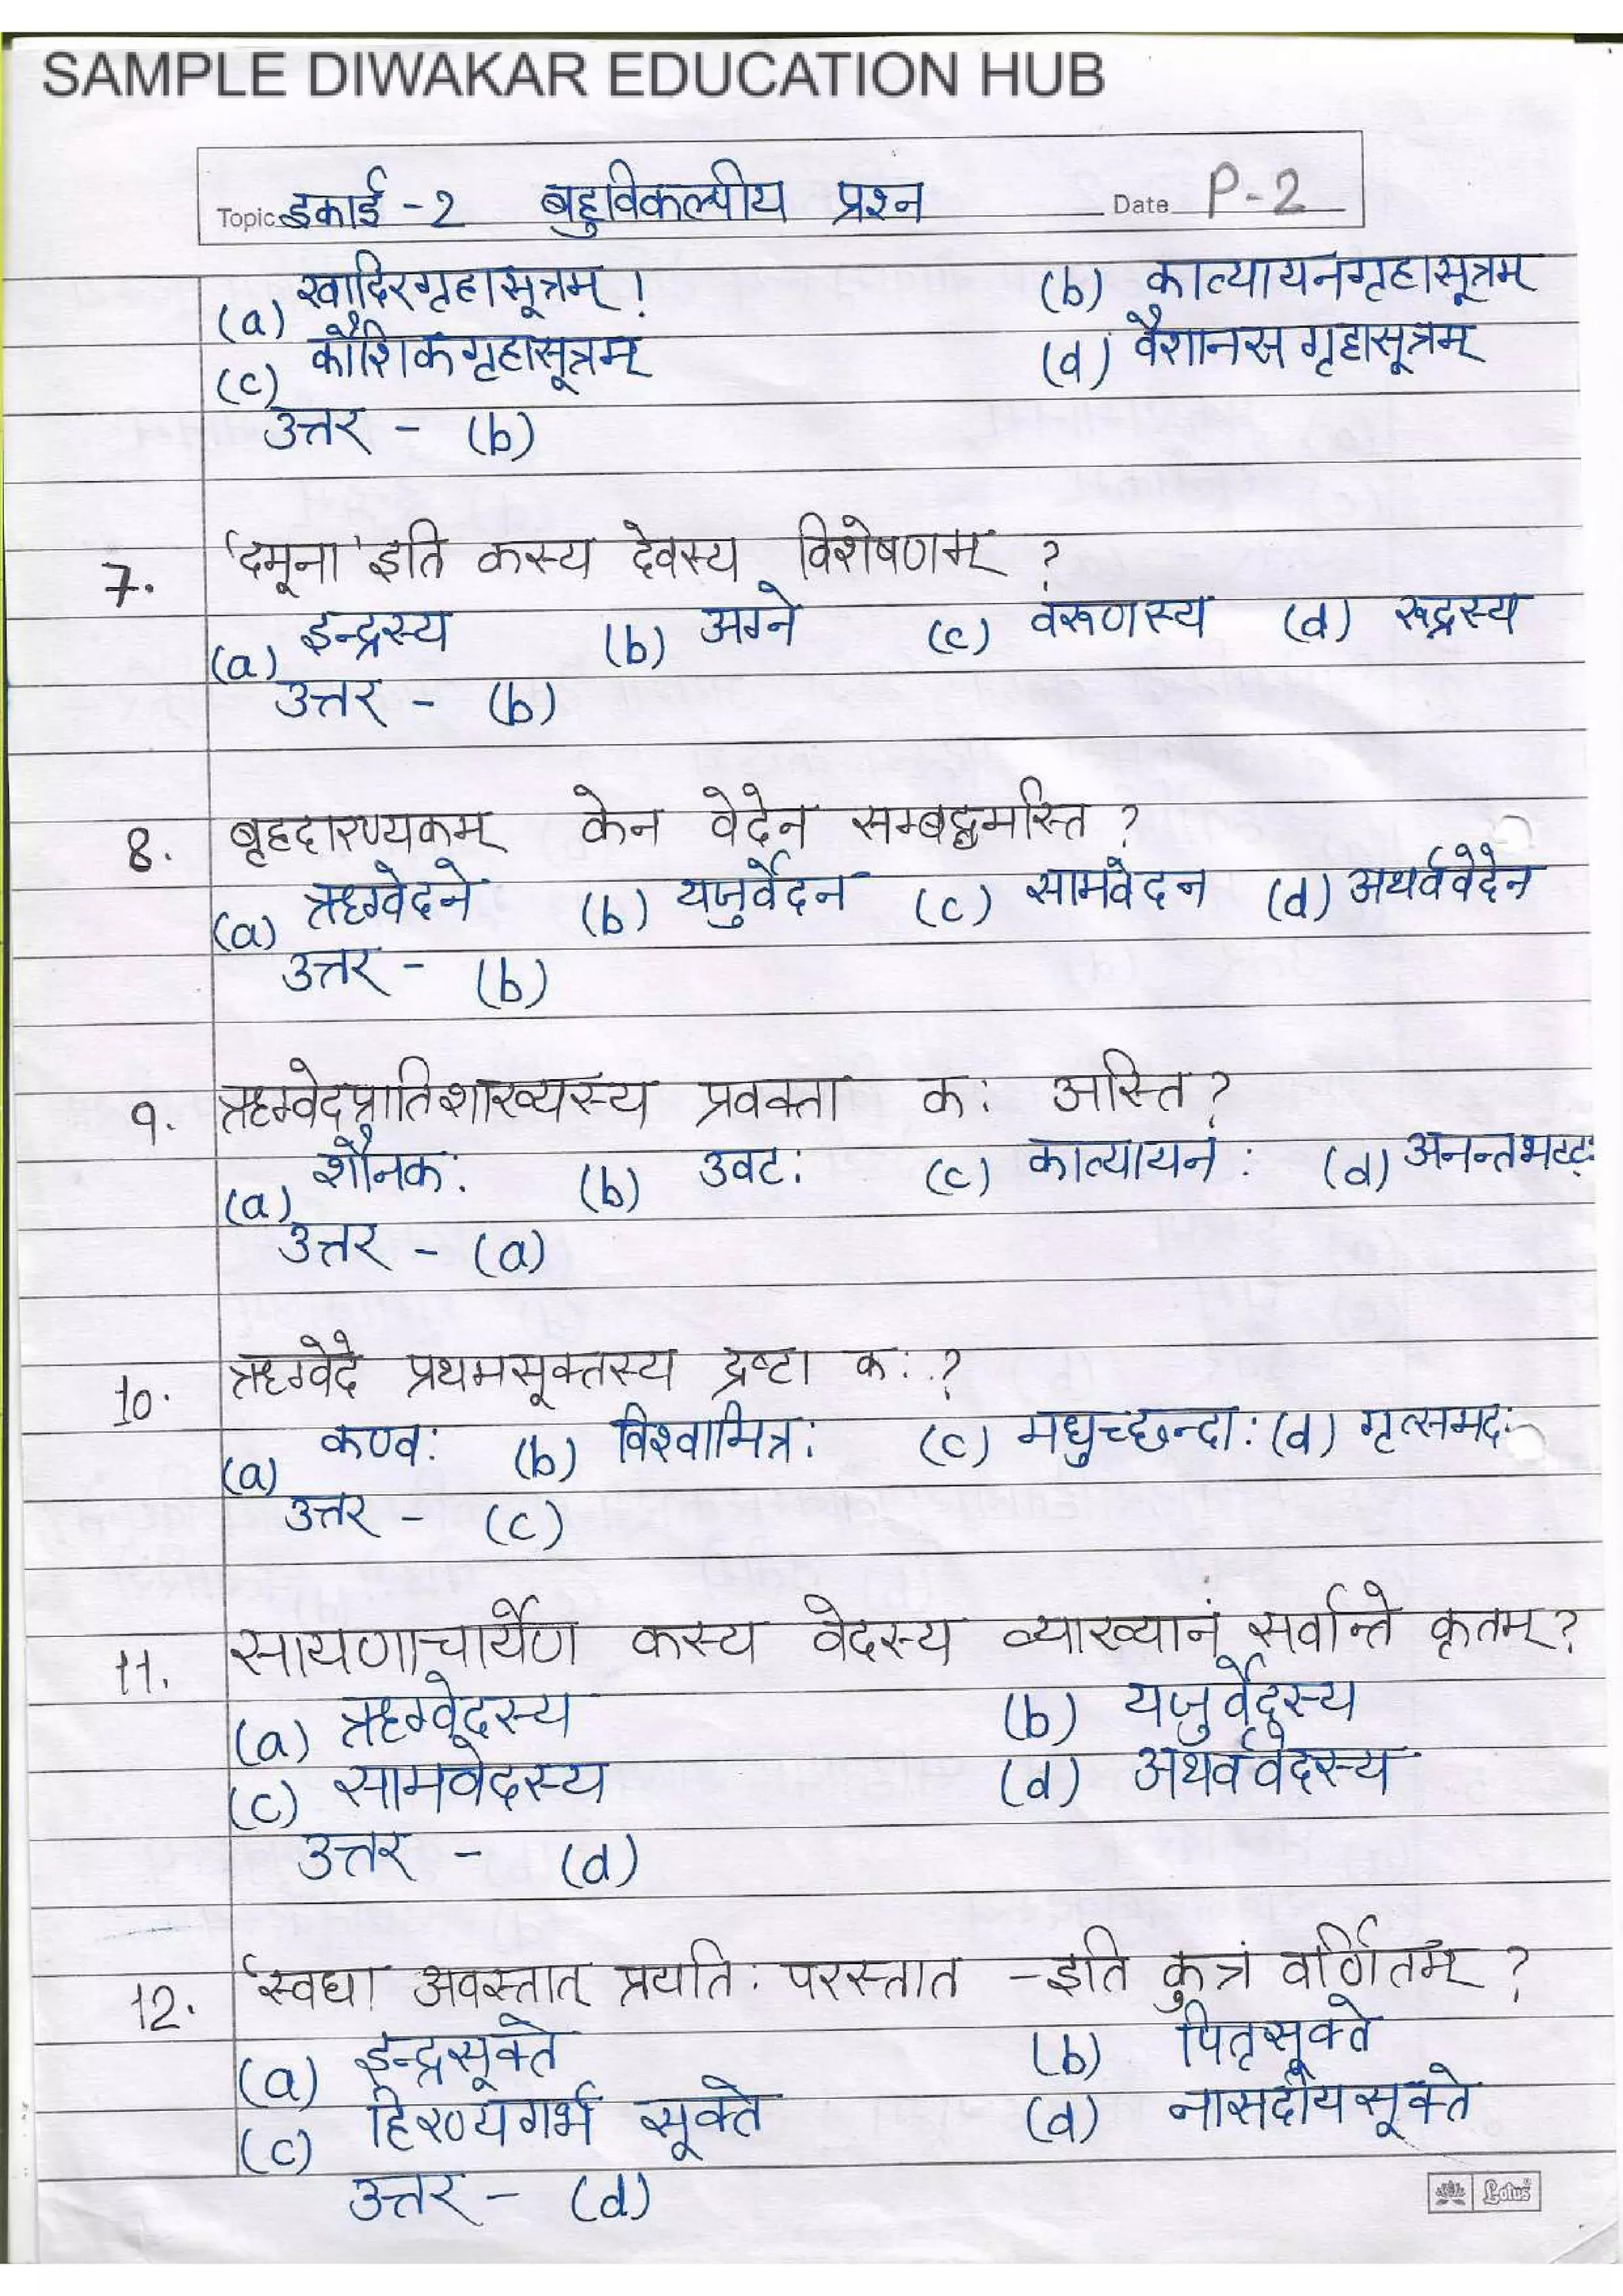 SAMPLE DIWAKAR EDUCATION HUB
Topic इकाई -2 बहुविकल्पीय प्रश्न Date P-2
(a) खादिरगृहासूत्रम् । (b) कात्यायनगृहासूत्रम्
(c) कौशिकगृहासूत्रम् (d) वैशानस गृहासूत्रम्
उत्तर - (b)
7. 'दमूना' इति कस्य देवस्य विशेषणम् ?
(a) इन्द्रस्य (b) अग्ने (c) वरूणस्य (d) रूद्रस्य
उत्तर - (b)
8. बृहदारण्यकम् केन वेदेन सम्बद्धमस्ति ?
(a) ऋग्वेदने (b) यजुर्वेदन (c) सामवेदन (d) अथर्ववेदेन
उत्तर - (b)
9. ऋग्वेदप्रातिशाख्यस्य प्रवक्ता कः अस्ति ?
(a) शौनकः (b) उवटः (c) कात्यायनः (d) अनन्तभटटः
उत्तर - (a)
10. ऋग्वेदे प्रथमसूक्तस्य द्रष्टा कः ?
(a) कण्वः (b) विश्वामित्रः (c) मधुच्छन्दाः (d) गृत्समदः
उत्तर - (c)
11. सायणाचार्येण कस्य वेदस्य व्याख्यानं सर्वान्ते कृतम् ?
(a) ऋग्वेदस्य (b) यजुर्वेदस्य
(c) सामवेदस्य (d) अथर्ववेदस्य
उत्तर - (d)
12. 'स्वधा अवस्तात् प्रयतिः परस्तात - इति कुत्रं वर्णितम् ?
(a) इन्द्रसूक्ते (b) पितृसूक्ते
(c) हिरण्यगर्भ सूक्ते (d) नासदीयसूक्ते
उत्तर - (d)
Lotus